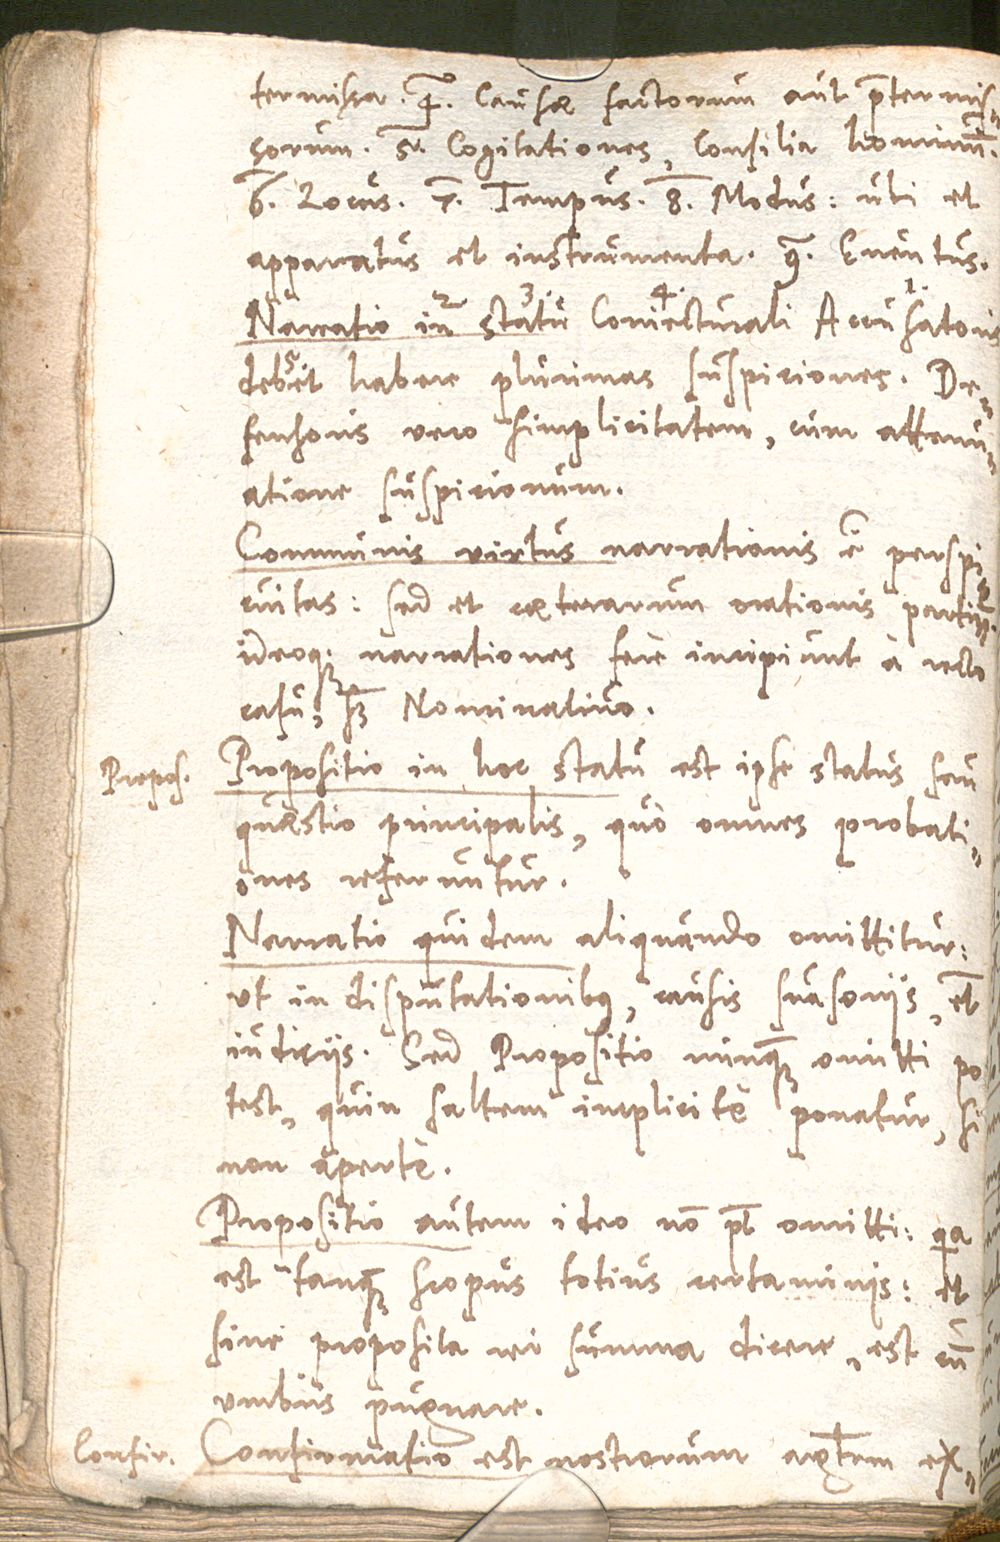 termissa. 4. Causæ factorum aut p̄termis„
sorum. 5. Cogitationes, Consilia hominū.
6. Locus. 7. Tempus. 8. Modus: ubi et
apparatus et instrumenta. 9. Euentus.
2 3. 4. 1.
Narratio in statu Coniecturali Accusatoris
5
debet habere plurimas suspiciones. De„
fensoris vero simplicitatem, cum attenu„
atione suspicionum.
Communis virtus narrationis ē perspi„
cuitas: sed et cæterarum orationis partiū.
ideoq; narrationes ferè incipiunt à recto
casu, Nominativo.
Propos. Propositio in hoc statu est ipse status seu
quæstio principalis, quò omnes probati„
ones referuntur.
Narratio quidem aliquando omittitur:
ut in disputationibq, causis suasoriis, et
iudicijs. Sed Propositio nunq̄ omitti po
test, quin saltem implicitè ponatur, si
non apertè.
Propositio autem ideo nō pt omitti: qa
est tanq̄ scopus totius certaminis: et
sine proposita rei summa dicere, est cū
umbris pugnare.
Confir. Confirmatio est nostrorum argtm ex„